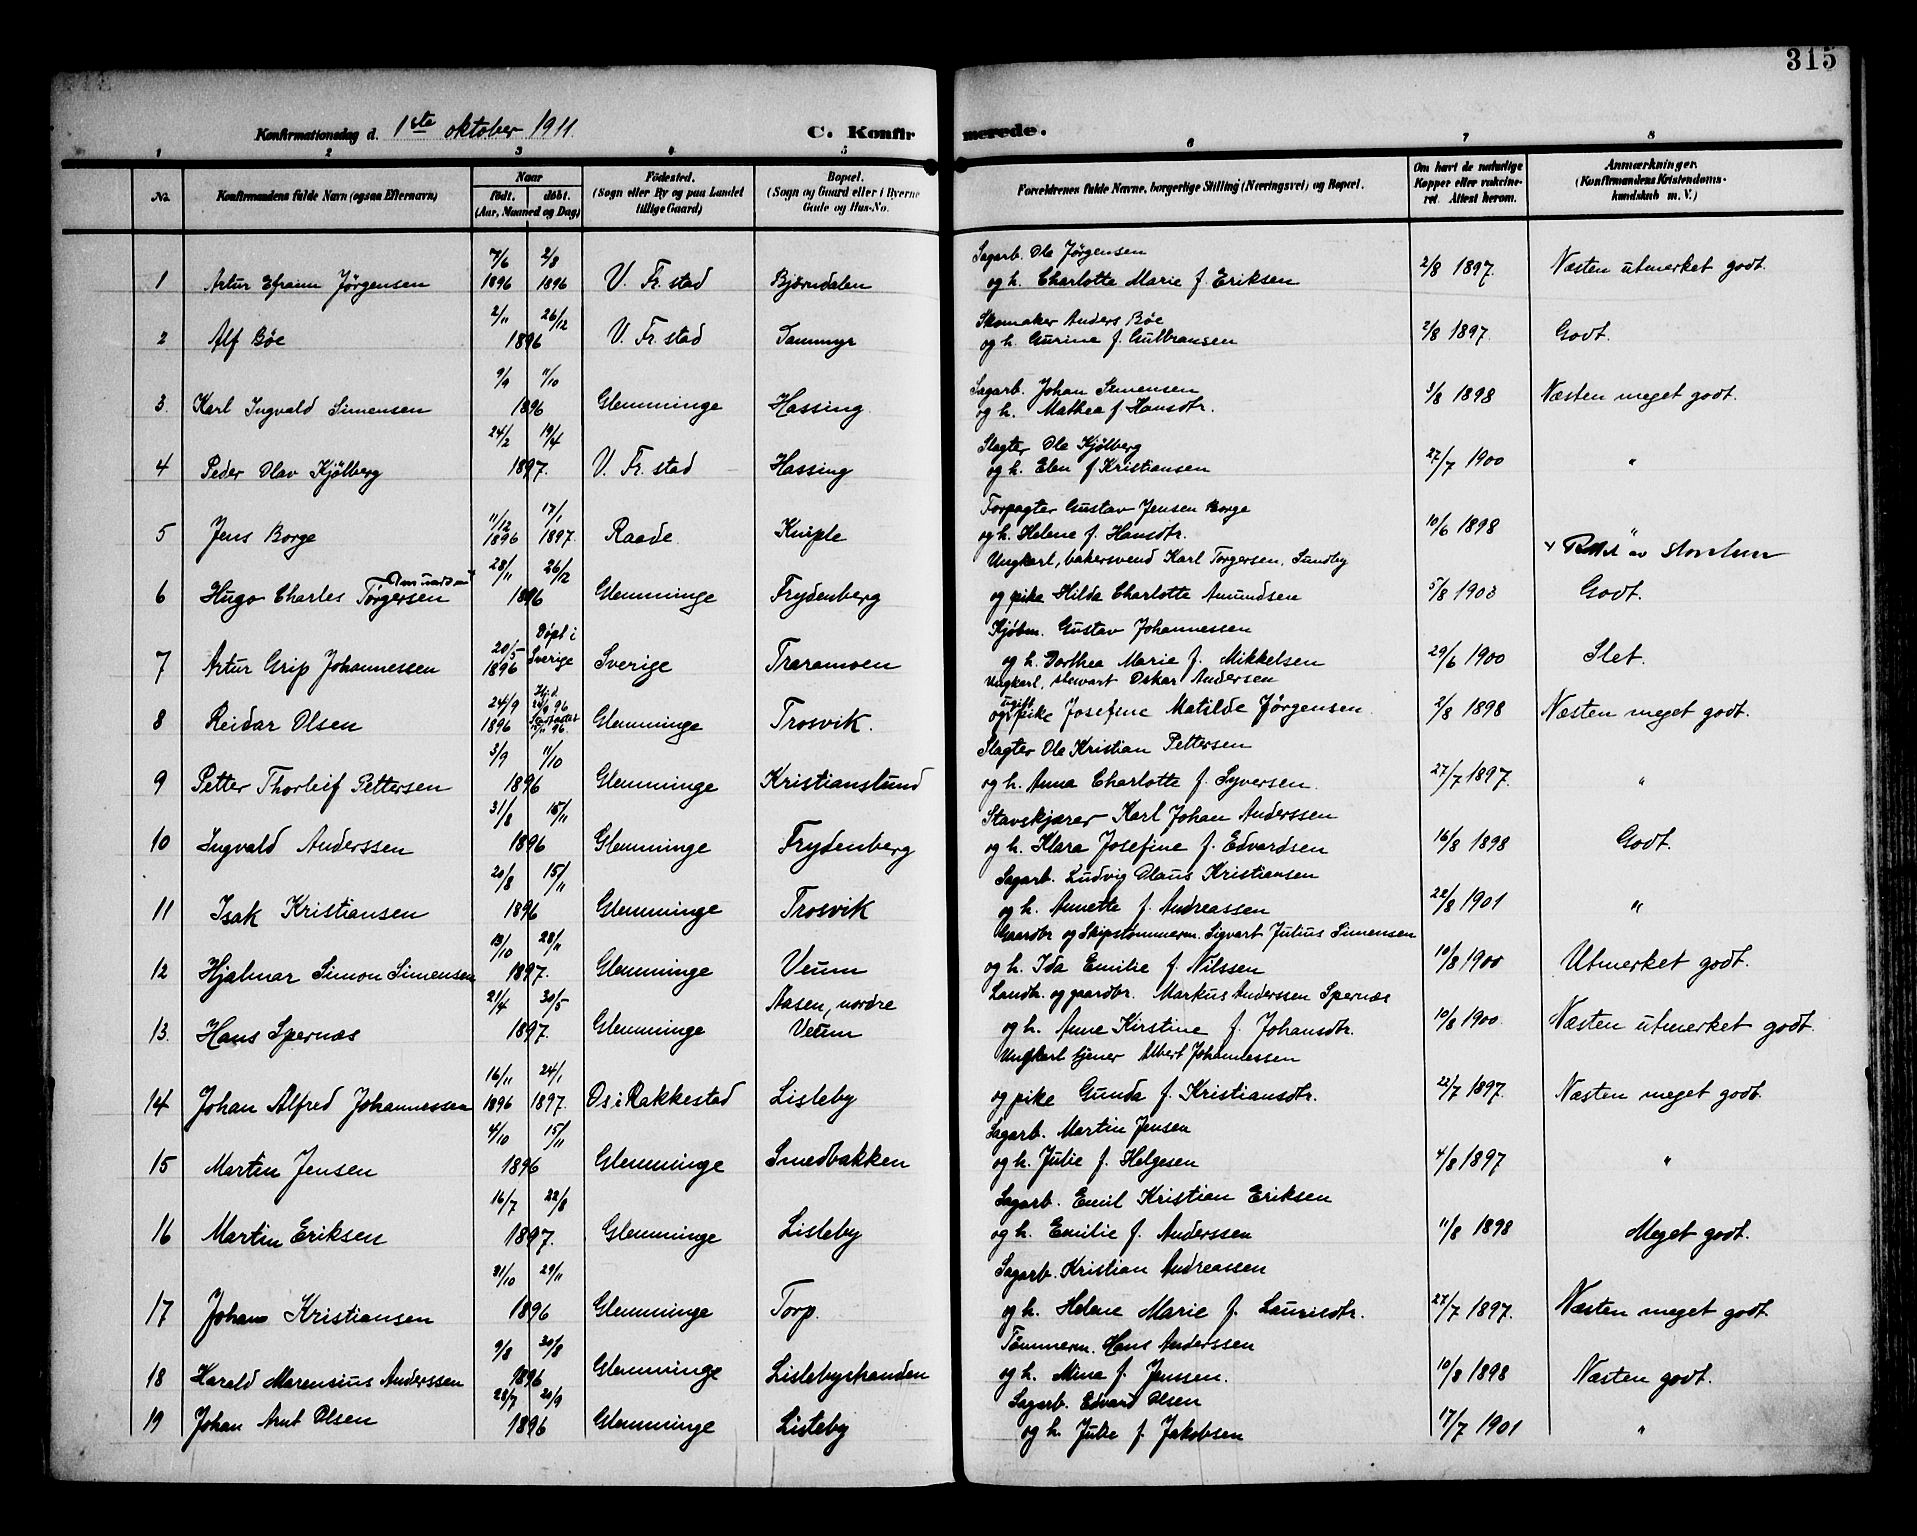 315
Konfirmationsdag d. 1ste oktober 1911. C. Konfirmerede.
1 2 3 4 5 6 7 8
No. Konfirmandens fulde Navn (ogsaa Efternavn) Naar født. døbt. (Aar, Maaned og Dag) Fødested. (Sogn eller By og paa Landet tillige Gaard) Bopæl. (Sogn og Gaard eller i Byerne Gade og Hus-No. Forældrenes fulde Navne, borgerlige Stilling (Næringsvei) og Bopæl. Om havt de naturlige Kopper eller vakcineret. Attest herom. Anmærkninger. (Konfirmandens Kristendomskundskab m. V.)
7/6 2/8 Sagarb. Ole Jørgensen
1 Artur Efraim Jørgensen 1896 1896 V. Fr. stad Bjørndalen og h. Charlotte Marie f. Eriksen 2/8 1897. Næsten utmerket godt.
2/11 26/12 Skomaker Anders Bøe
2 Alf Bøe 1896 V. Fr. stad Sammyr og h. Gurine f. Gulbransen 2/8 1897. Godt.
9/9 11/10 Sagarb. Johan Simensen
3. Karl Ingvald Simensen 1896 Glemminge Hassing og h. Mathea f. Hansdtr. 3/8 1898 Næsten meget godt.
24/2 19/4 Slagter Ole Kjølberg
4 Peder Olav Kjølberg 1897. V. Fr. stad Hassing og h. Elen f. Kristiansen 27/7 1900 "
11/12 17/1 Forpagter Gustav Jensen Borge
5 Jens Borge 1896 1897. Raade. Kniple og h. Helene f. Hansdtr. 10/6 1898 "
28/11 26/12 Ungkarl, bakersvend Karl Torgersen, Sundby
6 Hugo Charles Torgersen 1896 Glemminge Frydenberg og pike Hilda Charlotte Amundsen 5/8 1903 Godt.
20/5 Døpt i Sverige Kjøbm. Gustav Johannessen
7 Artur Grip Johannessen 1896 Sverige Traramoen og h. Dorthea Marie f. Mikkelsen 29/6 1900 Slet.
24/9 Hj.d. Ungkarl, stewart Oskar Andersen
8 Reidar Olsen 1896 Glemminge Trosvik. og ugift pike Josefine Matilde Jørgensen 2/8 1898 Næsten meget godt.
3/9 11/10 Slagter Ole Kristian Pettersen
9 Petter Thorleif Pettersen 1896 Glemminge Kristianslund og h. Anna Charlotte f. Syversen. 27/7 1897. "
31/8 15/11 Stavskjærer Karl Johan Anderssen
10 Ingvald Anderssen 1896 Glemminge Frydenberg og h. Klara Josefine f. Edvardsen 16/8 1898 Godt.
20/8 15/11 Sagarb. Ludvig Olaus Kristiansen
11 Isak Kristiansen 1896 Glemminge Trosvik og h. Annette f. Andreassen 22/8 1901 "
13/10 28/11 Gaardbr og Skipstømmerm. Sigvart Julius Simensen
12 Hjalmar Simon Simensen 1897. Glemminge Veum og h. Ida Emilie f. Nilssen 10/8 1900 Utmerket godt.
21/4 30/5 Aasen, nordre Landh. og gaardbr. Markus Anderssen Spernæs
13. Hans Spernæs 1897. Glemminge Veum og h. Anne Kirstine f. Johansdtr. 10/8 1900. Næsten utmerket godt.
16/11 24/1 Ungkarl tjener Albert Johannessen
14 Johan Alfred Johannessen 1896 1897. Os i Rakkestad Lisleby og pike Gunda f. Kristiansdtr. 22/7 1897. Næsten meget godt.
4/10 15/11 Sagarb. Martin Jensen
15 Martin Jensen 1896 Glemminge Smedbakken og h. Julie f. Helgesen 4/8 1897 "
16/7 22/8 Sagarb. Emil Kristian Eriksen
16 Martin Eriksen 1897. Glemminge Lisleby og h. Emilie f. Anderssen 11/8 1898 Meget godt.
31/10 29/11 Sagarb. Kristian Andreassen
17 Johans Kristiansen 1896 Glemminge Torp. og h. Helene Marie f. Lauritsdtr. 27/7 1897. Næsten meget godt
9/8 30/8 Tømmerm. Hans Anderssen
18 Harald Marensius Anderssen 1896 Glemminge Lislebystranden og h. Mina f. Jensen. 10/8 1898 Næsten godt.
28/7 20/9 Sagarb. Edvard Olsen
19 Johan Arnt Olsen 1896 Glemminge Lisleby og h. Julie f. Jakobsen 17/7 1901 "